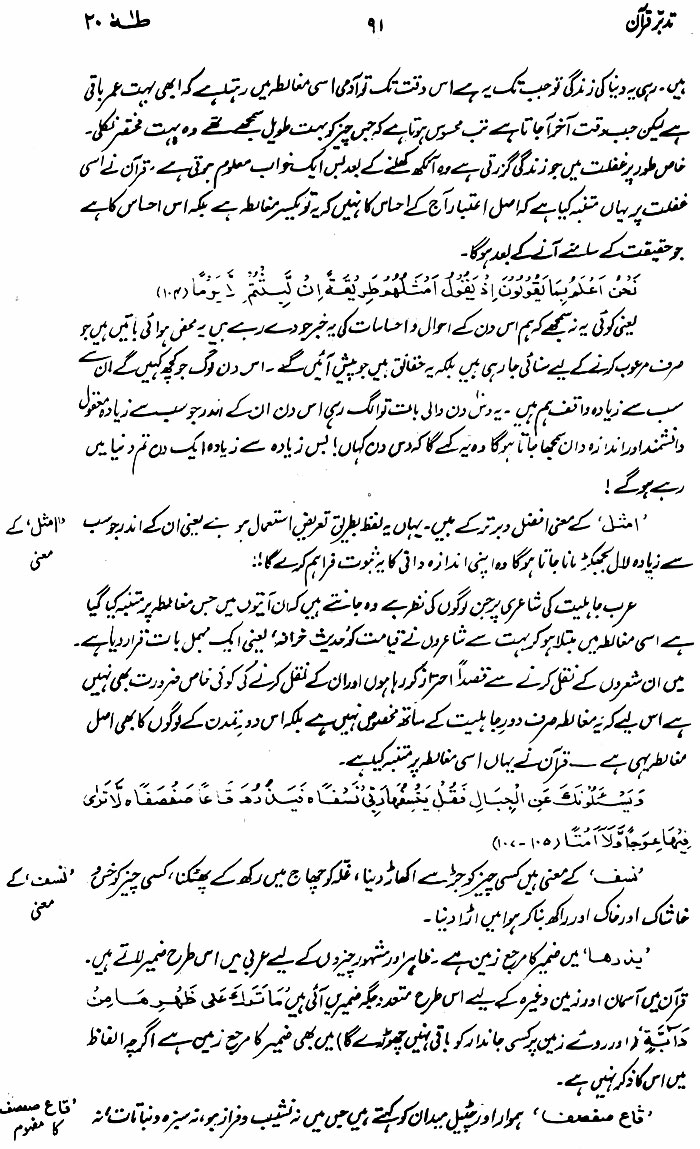 تدبّر قرآن ۹۱ طٰهٰ ۲۰
ہیں۔ رہی یہ دنیا کی زندگی تو جب تک یہ ہے اس وقت تک تو آدمی اسی مغالطہ میں رہتا ہے کہ ابھی بہت عمر باقی
ہے لیکن جب وقت آخر آ جاتا ہے تب محسوس ہوتا ہے کہ جس چیز کو بہت طویل سمجھے تھے وہ بہت مختصر نکلی۔
خاص طور پر غفلت میں جو زندگی گزرتی ہے وہ آنکھ کھلنے کے بعد بس ایک خواب معلوم ہوتی ہے۔ قرآن نے اسی
غفلت پر یہاں متنبہ کیا ہے کہ اصل اعتبار آج کے احساس کا نہیں کہ یہ تو یکسر مغالطہ ہے بلکہ اس احساس کا ہے
جو حقیقت کے سامنے آنے کے بعد ہوگا۔
نَحْنُ اَعْلَمُ بِمَا يَقُوْلُوْنَ اِذْ يَقُوْلُ اَمْثَلُهُمْ طَرِيْقَةً اِنْ لَّبِثْتُمْ اِلَّا يَوْمًا (۱۰۴)
یعنی کوئی یہ نہ سمجھے کہ ہم اس دن کے احوال و احساسات کی یہ خبر جو دے رہے ہیں یہ محض ہوائی باتیں ہیں جو
صرف مرعوب کرنے کے لیے سنائی جا رہی ہیں بلکہ یہ حقائق ہیں جو پیش آئیں گے۔ اس دن لوگ جو کچھ کہیں گے ان سے
سب سے زیادہ واقف ہم ہیں۔ یہ دس دن والی بات تو الگ رہی اس دن ان کے اندر جو سب سے زیادہ معقول
دانشمند اور اندازہ دان سمجھا جاتا ہوگا وہ یہ کہے گا کہ دس دن کہاں! بس زیادہ سے زیادہ ایک دن تم دنیا میں
رہے ہوگے!
’امثل‘ کے معنی افضل و برتر کے ہیں۔ یہاں یہ لفظ بطریق تعریض استعمال ہوا ہے یعنی ان کے اندر جو سب
’امثل‘ کے
سے زیادہ لال بجھکڑ مانا جاتا ہوگا وہ اپنی اندازہ دانی کا یہ ثبوت فراہم کرے گا!!
معنی
عرب جاہلیت کی شاعری پر جن لوگوں کی نظر ہے وہ جانتے ہیں کہ ان آیتوں میں جس مغالطہ پر متنبہ کیا گیا
ہے اسی مغالطہ میں مبتلا ہو کر بہت سے شاعروں نے قیامت کو ’حدیث خرافہ‘ یعنی ایک مہمل بات قرار دیا ہے۔
میں ان شعروں کے نقل کرنے سے قصداً احتراز کر رہا ہوں اور ان کے نقل کرنے کی کوئی خاص ضرورت بھی نہیں
ہے اس لیے کہ یہ مغالطہ صرف دورِ جاہلیت کے ساتھ مخصوص نہیں ہے بلکہ اس دورِ تمدن کے لوگوں کا بھی اصل
مغالطہ یہی ہے — قرآن نے یہاں اسی مغالطہ پر متنبہ کیا ہے۔
وَيَسْـَٔلُوْنَكَ عَنِ الْجِبَالِ فَقُلْ يَنْسِفُهَا رَبِّيْ نَسْفًا ہ فَيَذَرُهَا قَاعًا صَفْصَفًا ہ لَّا تَرٰى
فِيْهَا عِوَجًا وَّلَآ اَمْتًا (۱۰۵-۱۰۷)
’نسف‘ کے معنی ہیں کسی چیز کو جڑ سے اکھاڑ دینا، غلّہ کو چھاج میں رکھ کے پھٹکنا، کسی چیز کو خس و
’نسف‘ کے
خاشاک اور خاک اور راکھ بنا کر ہوا میں اڑا دینا۔
معنی
’یذرها‘ میں ضمیر کا مرجع زمین ہے۔ ظاہر اور مشہور چیزوں کے لیے عربی میں اس طرح ضمیر لاتے ہیں۔
قرآن میں آسمان اور زمین وغیرہ کے لیے اس طرح متعدد جگہ ضمیریں آئی ہیں ’مَا تَرَكَ عَلٰى ظَهْرِهَا مِنْ
دَآبَّةٍ‘ (اور روئے زمین پر کسی جاندار کو باقی نہیں چھوڑے گا) میں بھی ضمیر کا مرجع زمین ہے اگرچہ الفاظ
میں اس کا ذکر نہیں ہے۔
’قاع صفصف‘ ہموار اور چٹیل میدان کو کہتے ہیں جس میں نہ نشیب و فراز ہو، نہ سبزہ و نباتات، نہ
’قاع صفصف‘
کا مفہوم